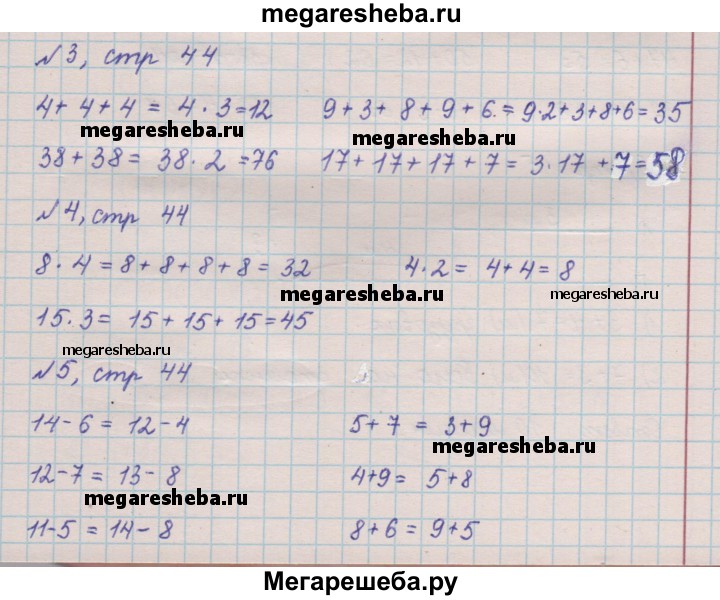 megaresheba.ru
№3, стр 44
4 + 4 + 4 = 4 · 3 = 12 9 + 3 + 8 + 9 + 6 = 9·2 + 3 + 8 + 6 = 35
megaresheba.ru megaresheba.ru
38 + 38 = 38 · 2 = 76 17 + 17 + 17 + 7 = 3·17 + 7 = 58
№4, стр 44
8 · 4 = 8 + 8 + 8 + 8 = 32 4 · 2 = 4 + 4 = 8
megaresheba.ru megaresheba.ru
15 · 3 = 15 + 15 + 15 = 45
megaresheba.ru
№5, стр 44
14 - 6 = 12 - 4 5 + 7 = 3 + 9
megaresheba.ru
12 - 7 = 13 - 8 4 + 9 = 5 + 8
megaresheba.ru
11 - 5 = 14 - 8 8 + 6 = 9 + 5
Мегарешеба.ру